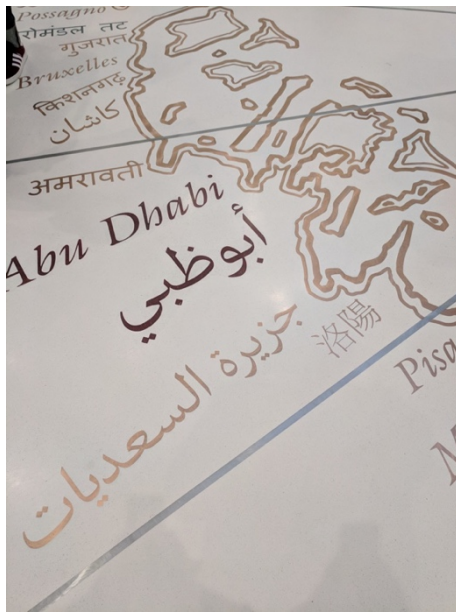 Possagno
रोमंडल तट
गुजरात
Bruxelles
किशनगढ़
كاشان
अमरावती
Abu Dhabi
أبوظبي
جزيرة السعديات
洛陽
Pisa